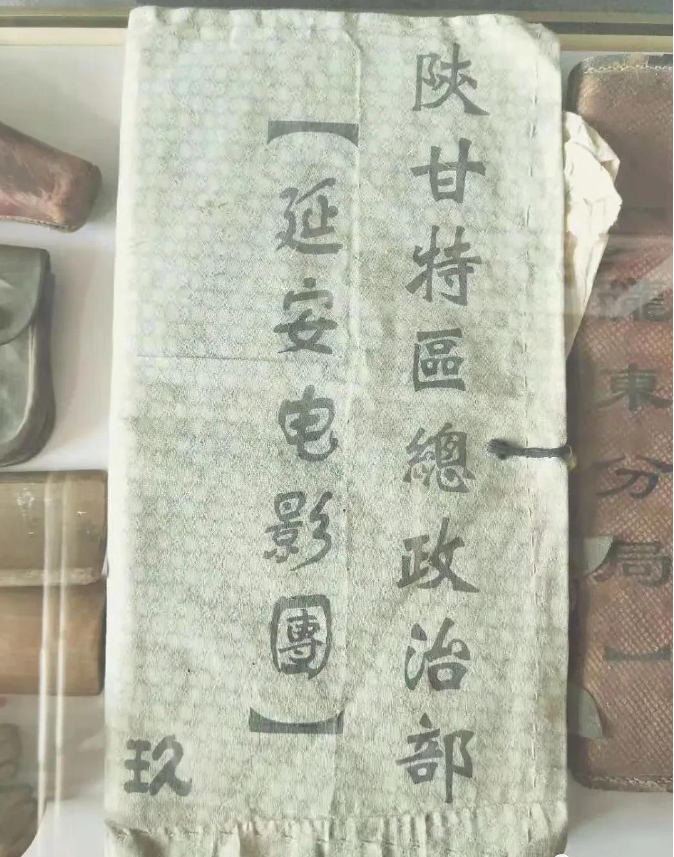 陝甘特區總政治部
【延安电影團】
玖
東分局】